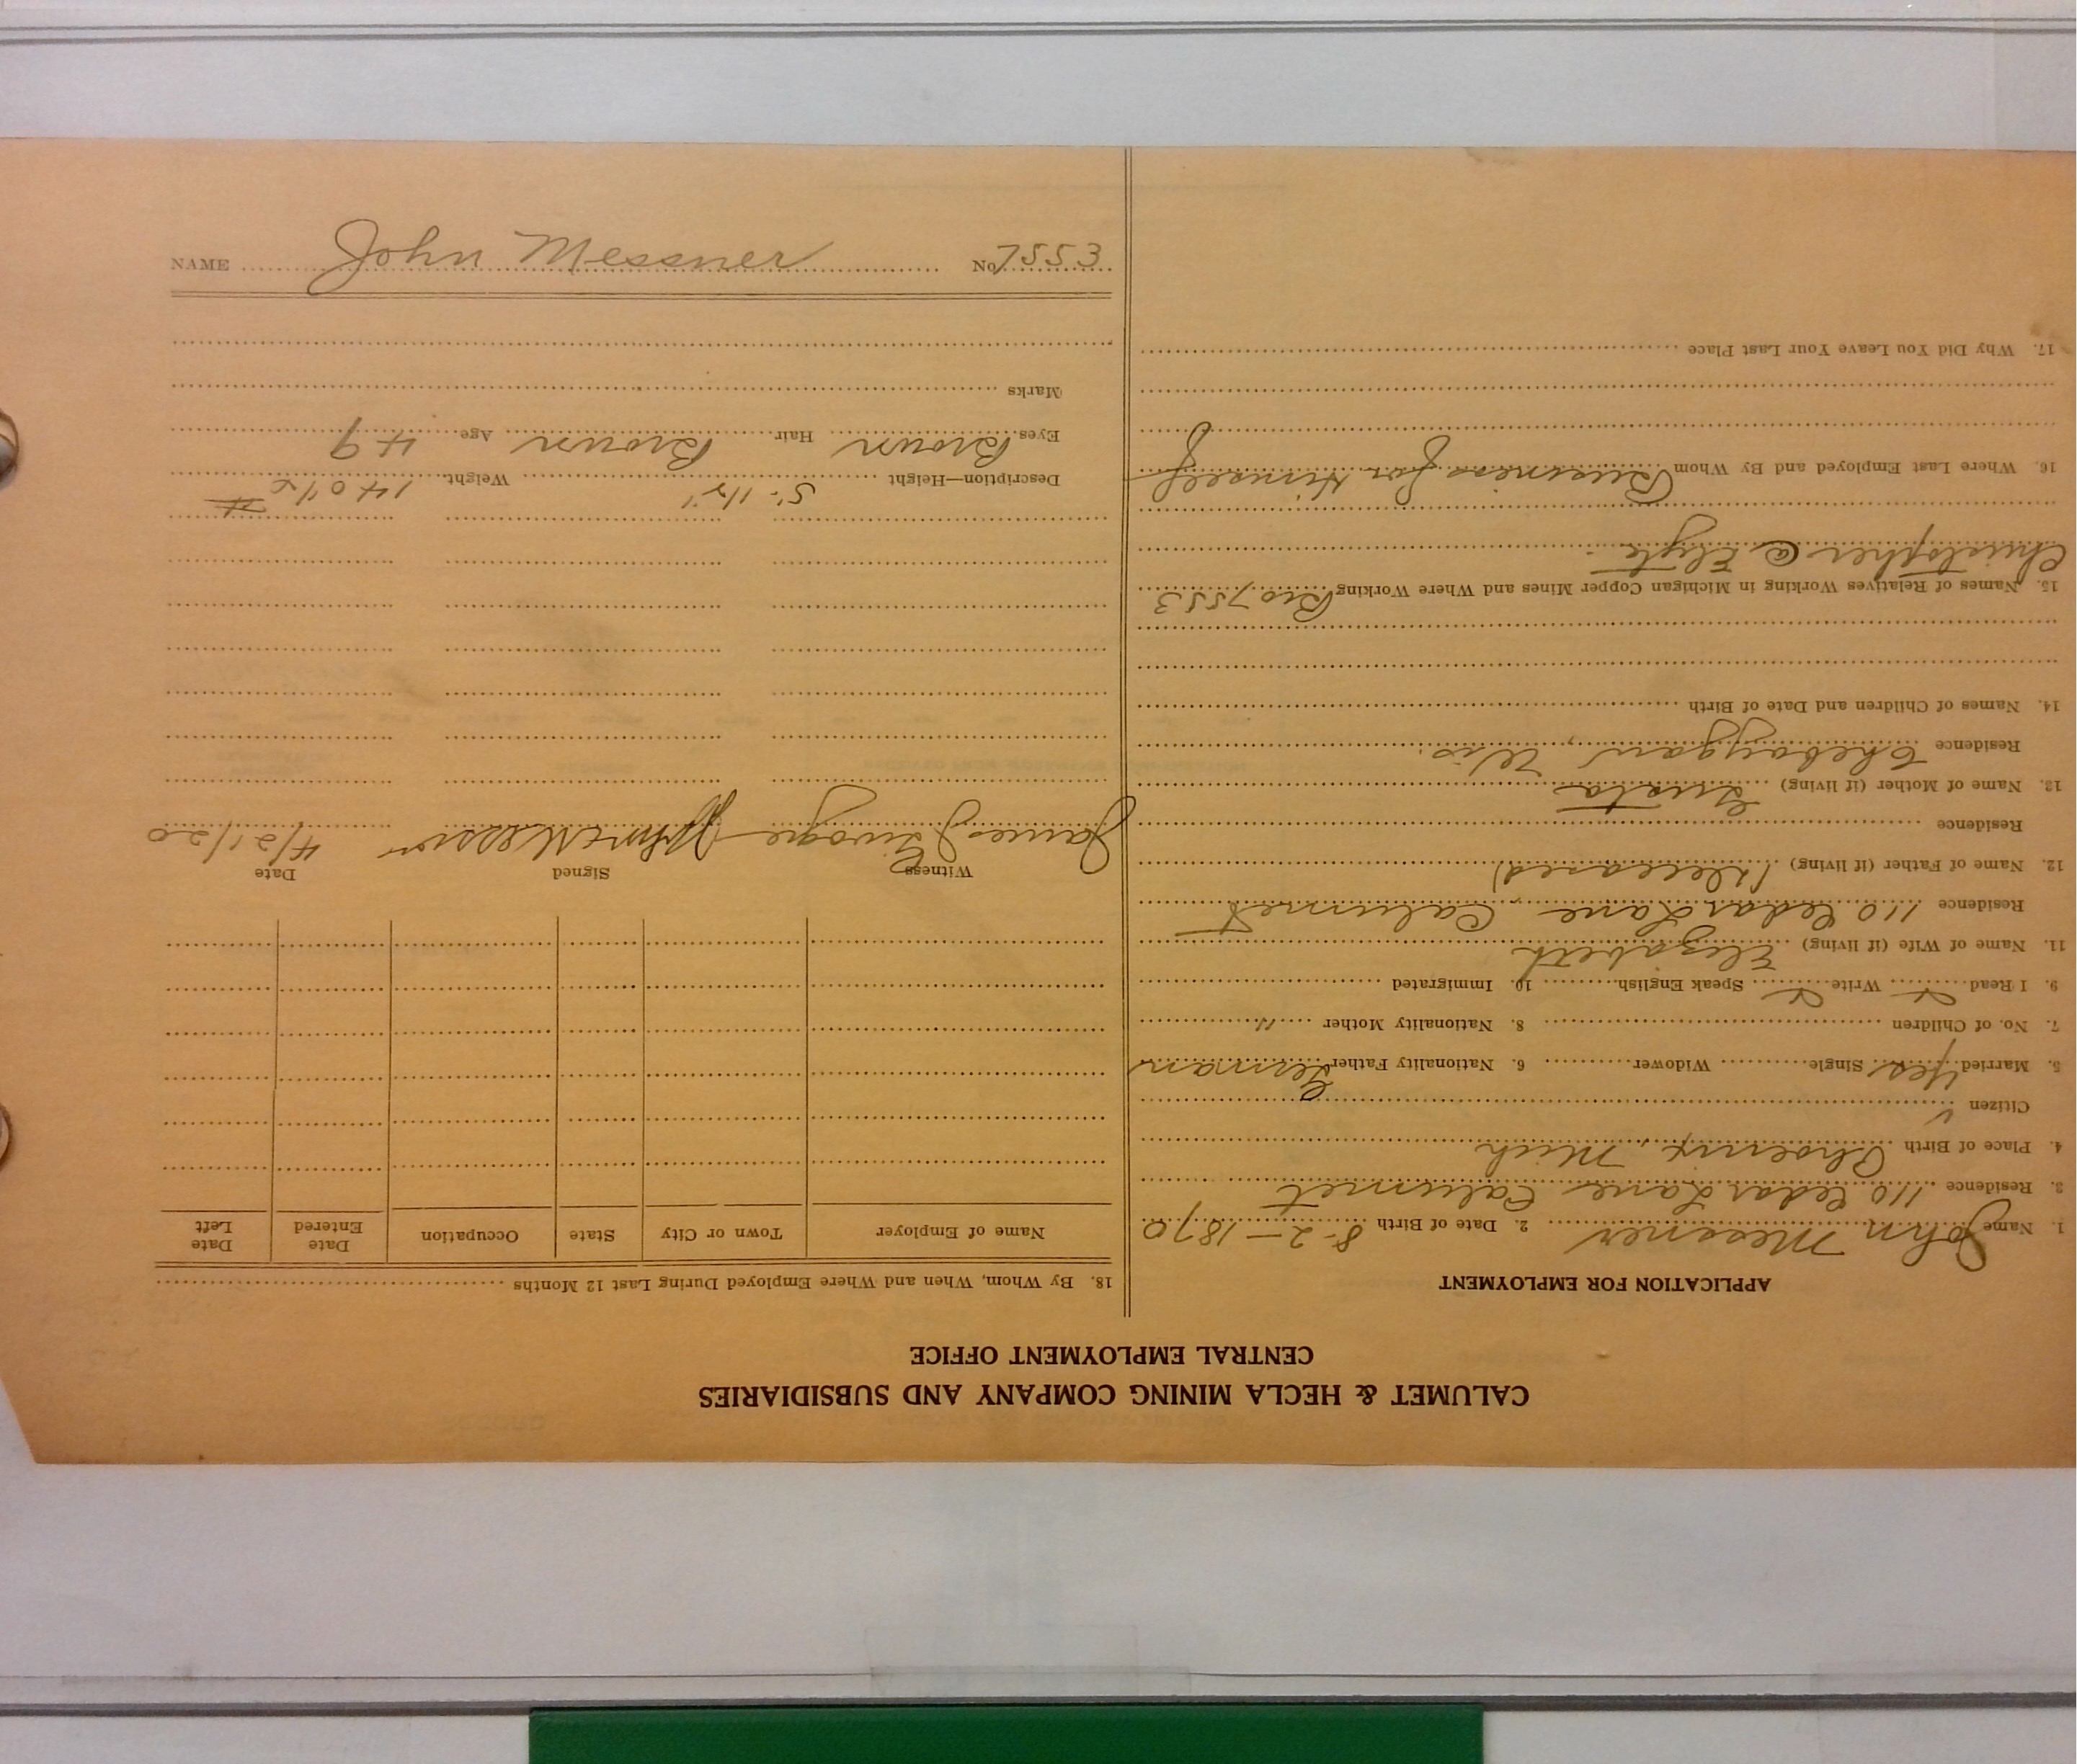 CALUMET & HECLA MINING COMPANY AND SUBSIDIARIES
CENTRAL EMPLOYMENT OFFICE
APPLICATION FOR EMPLOYMENT
1. Name John Messner 2. Date of Birth 8-2-1870
3. Residence 110 Cedar Lane Calumet
4. Place of Birth Phoenix, Mich
Citizen ✓
5. Married Yes Single Widower 6. Nationality Father German
7. No. of Children 8. Nationality Mother "
9. I Read Write Speak English 10. Immigrated
11. Name of Wife (if living) Elizabeth
Residence 110 Cedar Lane, Calumet
12. Name of Father (if living) (Deceased)
Residence
13. Name of Mother (if living)
Residence Sheboygan, Wis.
14. Names of Children and Date of Birth
15. Names of Relatives Working in Michigan Copper Mines and Where Working Bro 7553
Christopher @
16. Where Last Employed and By Whom Business for Himself
17. Why Did You Leave Your Last Place
18. By Whom, When and Where Employed During Last 12 Months
Name of Employer Town or City State Occupation Date Entered Date Left
Witness Signed Date
James John Messner 4/21/20
Description—Height Weight 140½ #
Eyes Brown Hair Brown Age 49
Marks
NAME John Messner No. 7553